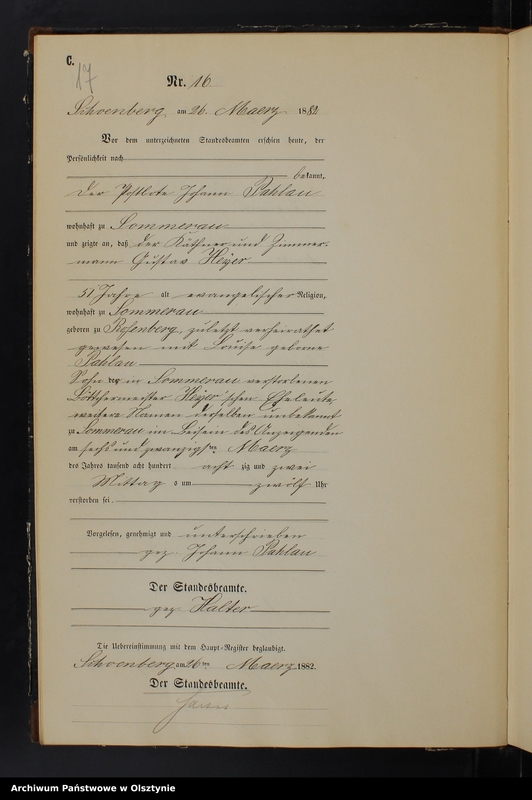 C.
17
Nr. 16
Schoenberg am 26. Maerz 1882
Vor dem unterzeichneten Standesbeamten erschien heute, der
Persönlichkeit nach
bekannt,
der Postbote Johann Pahlau
wohnhaft zu Sommerau
und zeigte an, daß der Käthner und Zimmer-
mann Gustav Heyer
51 Jahre alt evangelischer Religion,
wohnhaft zu Sommerau
geboren zu Rosenberg, zuletzt verheirathet
gewesen mit Louise geborne
Pahlau
Sohn der in Sommerau verstorbenen
Böttchermeister Heyer'schen Eheleute
weitere Namen derselben unbekannt
zu Sommerau im Beisein des Anzeigenden
am sechs und zwanzigsten Maerz
des Jahres tausend acht hundert acht zig und zwei
Mittag s um zwölf Uhr
verstorben sei.
Vorgelesen, genehmigt und unterschrieben
gez. Johann Pahlau
Der Standesbeamte.
gez. Halter
Die Uebereinstimmung mit dem Haupt-Register beglaubigt.
Schoenberg am 26ten Maerz 1882.
Der Standesbeamte.
Archiwum Państwowe w Olsztynie